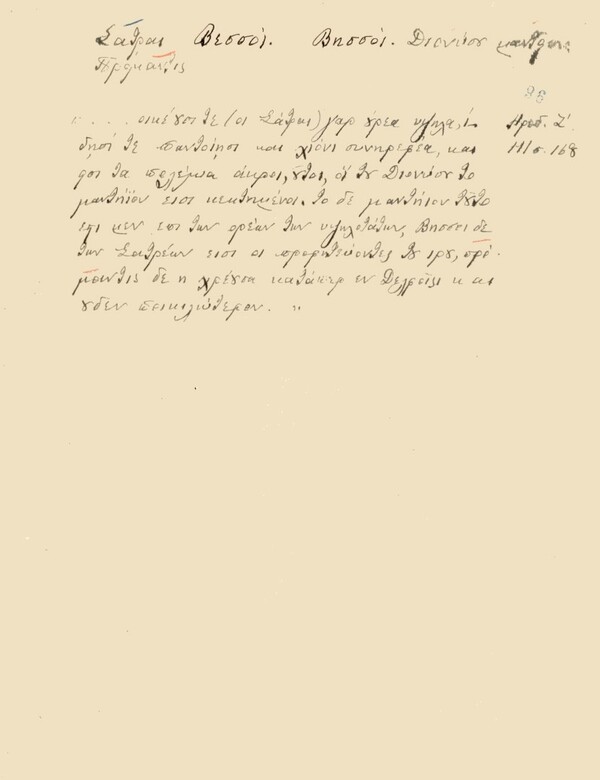 Σάτραι Βεσσοί. Βησσοί. Διονύσου μαντήον
Πρόμαντις
88
".... οικέουσί τε (οι Σάτραι) γαρ ούρεα υψηλά, ί- Ηροδ. Ζ'
δησί τε παντοίησι και χιόνι συνηρεφέα, και 111/σ. 168
εισι τα πολέμια άκροι, ούτοι, οί του Διονύσου το
μαντήϊόν εισι κεκτημένοι. το δε μαντήιον τούτο
έστι μεν επί των ορέων των υψηλοτάτων, Βησσοί δε
των Σατρέων εισι οι προφητεύοντες του ιρού, πρό-
μαντις δε η χρέουσα κατάπερ εν Δελφοίσι και
ουδέν ποικιλώτερον. "